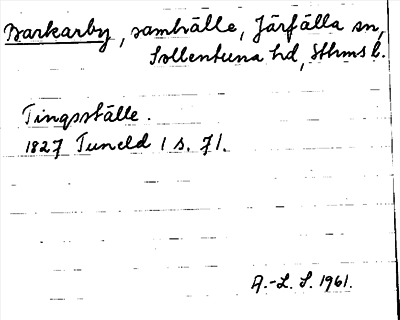 Barkarby, samhälle, Järfälla sn,
Sollentuna hd, Sthms l.
Tingsställe.
1827 Tuneld 1 s. 71.
A.-L. S. 1961.